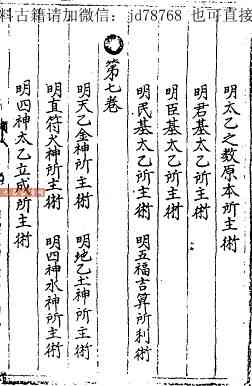 料古籍请加微信： jd78768 也可直接
明太乙之数原本所主術
明君基太乙所主術
明臣基太乙所主術
明民基太乙所主術　明五福吉算所利術
第七卷
明天乙金神所主術　明地乙土神所主術
明直符火神所主術　明四神水神所主術
明四神太乙立成所主術